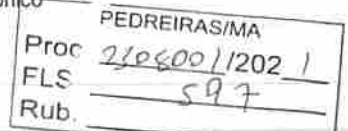 onico
PEDREIRAS/MA
Proc 2108001/2021
FLS 597
Rub.